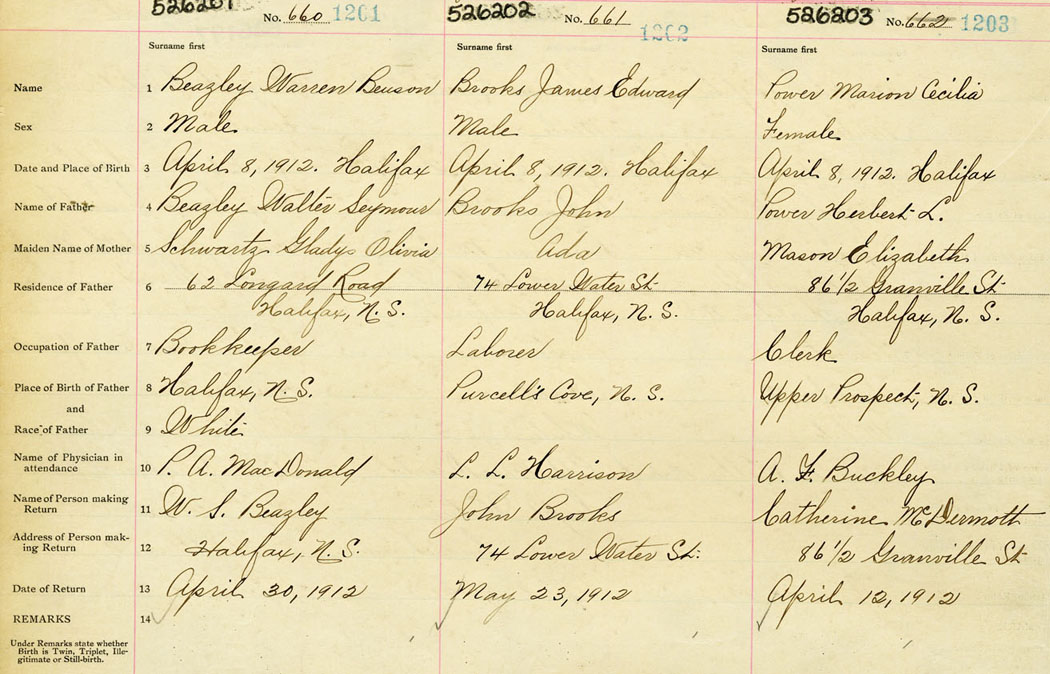 526201 No. 660 1201 526202 No. 661 1202 526203 No. 662 1203
Surname first Surname first Surname first
Name 1 Beazley Warren Benson Brooks James Edward Power Marion Cecilia
Sex 2 Male Male Female
Date and Place of Birth 3 April 8, 1912. Halifax April 8, 1912. Halifax April 8, 1912. Halifax
Name of Father 4 Beazley Walter Seymour Brooks John Power Herbert L.
Maiden Name of Mother 5 Schwartz Gladys Olivia Ada Mason Elizabeth
Residence of Father 6 62 Longard Road 74 Lower Water St. 86 1/2 Granville St.
Halifax, N. S. Halifax, N. S. Halifax, N. S.
Occupation of Father 7 Bookkeeper Laborer Clerk
Place of Birth of Father 8 Halifax, N. S. Purcell's Cove, N. S. Upper Prospect, N. S.
and
Race of Father 9 White
Name of Physician in
attendance 10 P. A. MacDonald L. L. Harrison A. F. Buckley
Name of Person making
Return 11 W. S. Beazley John Brooks Catherine McDermott
Address of Person mak-
ing Return 12 Halifax, N. S. 74 Lower Water St. 86 1/2 Granville St
Date of Return 13 April 30, 1912 May 23, 1912 April 12, 1912
REMARKS 14
Under Remarks state whether
Birth is Twin, Triplet, Ille-
gitimate or Still-birth.